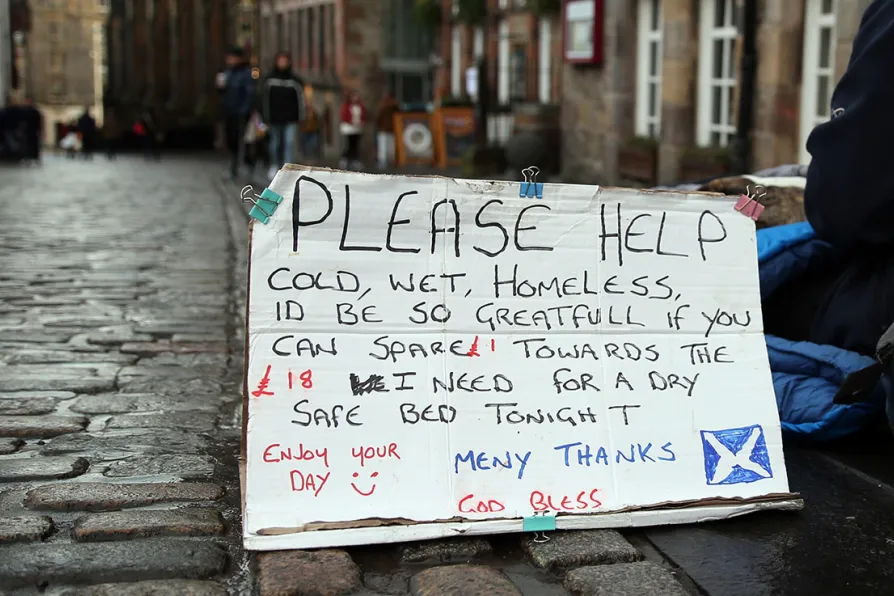 PLEASE HELP
COLD, WET, HOMELESS,
ID BE SO GREATFULL IF YOU
CAN SPARE £1 TOWARDS THE
£18 I NEED FOR A DRY
SAFE BED TONIGHT
ENJOY YOUR
DAY
MENY THANKS
GOD BLESS